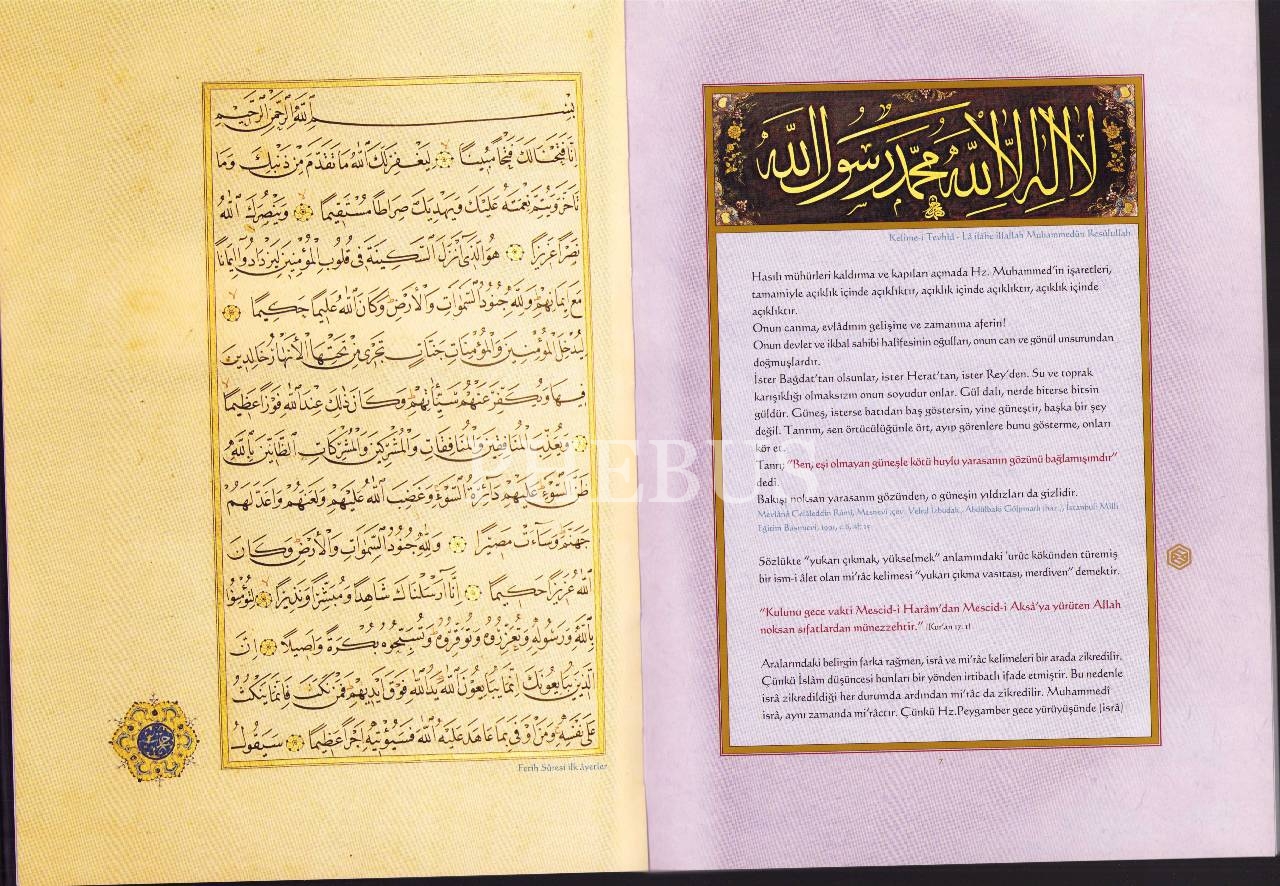 بِسْمِ ٱللَّهِ ٱلرَّحْمَٰنِ ٱلرَّحِيمِ
إِنَّا فَتَحْنَا لَكَ فَتْحًا مُبِينًا لِيَغْفِرَ لَكَ ٱللَّهُ مَا تَقَدَّمَ مِنْ ذَنْبِكَ وَمَا
تَأَخَّرَ وَيُتِمَّ نِعْمَتَهُ عَلَيْكَ وَيَهْدِيَكَ صِرَاطًا مُسْتَقِيمًا وَيَنْصُرَكَ ٱللَّهُ
نَصْرًا عَزِيزًا هُوَ ٱلَّذِي أَنْزَلَ ٱلسَّكِينَةَ فِي قُلُوبِ ٱلْمُؤْمِنِينَ لِيَزْدَادُوا إِيمَانًا
مَعَ إِيمَانِهِمْ وَلِلَّهِ جُنُودُ ٱلسَّمَٰوَاتِ وَٱلْأَرْضِ وَكَانَ ٱللَّهُ عَلِيمًا حَكِيمًا
لِيُدْخِلَ ٱلْمُؤْمِنِينَ وَٱلْمُؤْمِنَاتِ جَنَّاتٍ تَجْرِي مِنْ تَحْتِهَا ٱلْأَنْهَارُ خَالِدِينَ
فِيهَا وَيُكَفِّرَ عَنْهُمْ سَيِّئَاتِهِمْ وَكَانَ ذَٰلِكَ عِنْدَ ٱللَّهِ فَوْزًا عَظِيمًا
وَيُعَذِّبَ ٱلْمُنَافِقِينَ وَٱلْمُنَافِقَاتِ وَٱلْمُشْرِكِينَ وَٱلْمُشْرِكَاتِ ٱلظَّانِّينَ بِٱللَّهِ
ظَنَّ ٱلسَّوْءِ عَلَيْهِمْ دَائِرَةُ ٱلسَّوْءِ وَغَضِبَ ٱللَّهُ عَلَيْهِمْ وَلَعَنَهُمْ وَأَعَدَّ لَهُمْ
جَهَنَّمَ وَسَاءَتْ مَصِيرًا وَلِلَّهِ جُنُودُ ٱلسَّمَٰوَاتِ وَٱلْأَرْضِ وَكَانَ
ٱللَّهُ عَزِيزًا حَكِيمًا إِنَّا أَرْسَلْنَاكَ شَاهِدًا وَمُبَشِّرًا وَنَذِيرًا لِتُؤْمِنُوا
بِٱللَّهِ وَرَسُولِهِ وَتُعَزِّرُوهُ وَتُوَقِّرُوهُ وَتُسَبِّحُوهُ بُكْرَةً وَأَصِيلًا إِنَّ
ٱلَّذِينَ يُبَايِعُونَكَ إِنَّمَا يُبَايِعُونَ ٱللَّهَ يَدُ ٱللَّهِ فَوْقَ أَيْدِيهِمْ فَمَنْ نَكَثَ فَإِنَّمَا يَنْكُثُ
عَلَىٰ نَفْسِهِ وَمَنْ أَوْفَىٰ بِمَا عَاهَدَ عَلَيْهُ ٱللَّهَ فَسَيُؤْتِيهِ أَجْرًا عَظِيمًا سَيَقُولُ
Fetih Sûresi ilk âyetler
لا اله الا الله محمد رسول الله
Kelime-i Tevhîd - Lâ ilâhe illallah Muhammedün Resûlullah.
Hasılı mühürleri kaldırma ve kapıları açmada Hz. Muhammed'in işaretleri,
tamamiyle açıklık içinde açıklıktır, açıklık içinde açıklıktır, açıklık içinde
açıklıktır.
Onun canına, evlâdının gelişine ve zamanına aferin!
Onun devlet ve ikbal sahibi halifesinin oğulları, onun can ve gönül unsurundan
doğmuşlardır.
İster Bağdat'tan olsunlar, ister Herat'tan, ister Rey'den. Su ve toprak
karışıklığı olmaksızın onun soyudur onlar. Gül dalı, nerde biterse bitsin
güldür. Güneş, isterse batıdan baş göstersin, yine güneştir, başka bir şey
değil. Tanrım, sen örtücülüğünle ört, ayıp görenlere bunu gösterme, onları
kör et.
Tanrı; "Ben, eşi olmayan güneşle kötü huylu yarasanın gözünü bağlamışımdır"
dedi.
Bakışı noksan yarasanın gözünden, o güneşin yıldızları da gizlidir.
Mevlânâ Celâleddin Rûmî, Mesnevi (çev. Veled İzbudak, Abdülbaki Gölpınarlı (haz.), İstanbul: Milli
Eğitim Basımevi, 1991, c.6, sf: 15
Sözlükte "yukarı çıkmak, yükselmek" anlamındaki 'urûc kökünden türemiş
bir ism-i âlet olan mi'râc kelimesi "yukarı çıkma vasıtası, merdiven" demektir.
"Kulunu gece vakti Mescid-i Harâm'dan Mescid-i Aksâ'ya yürüten Allah
noksan sıfatlardan münezzehtir." [Kur'an 17: 1]
Aralarındaki belirgin farka rağmen, isrâ ve mi'râc kelimeleri bir arada zikredilir.
Çünkü İslâm düşüncesi bunları bir yönden irtibatlı ifade etmiştir. Bu nedenle
isrâ zikredildiği her durumda ardından mi'râc da zikredilir. Muhammedî
isrâ, aynı zamanda mi'râctır. Çünkü Hz.Peygamber gece yürüyüşünde [isrâ]
7
PHEBUS